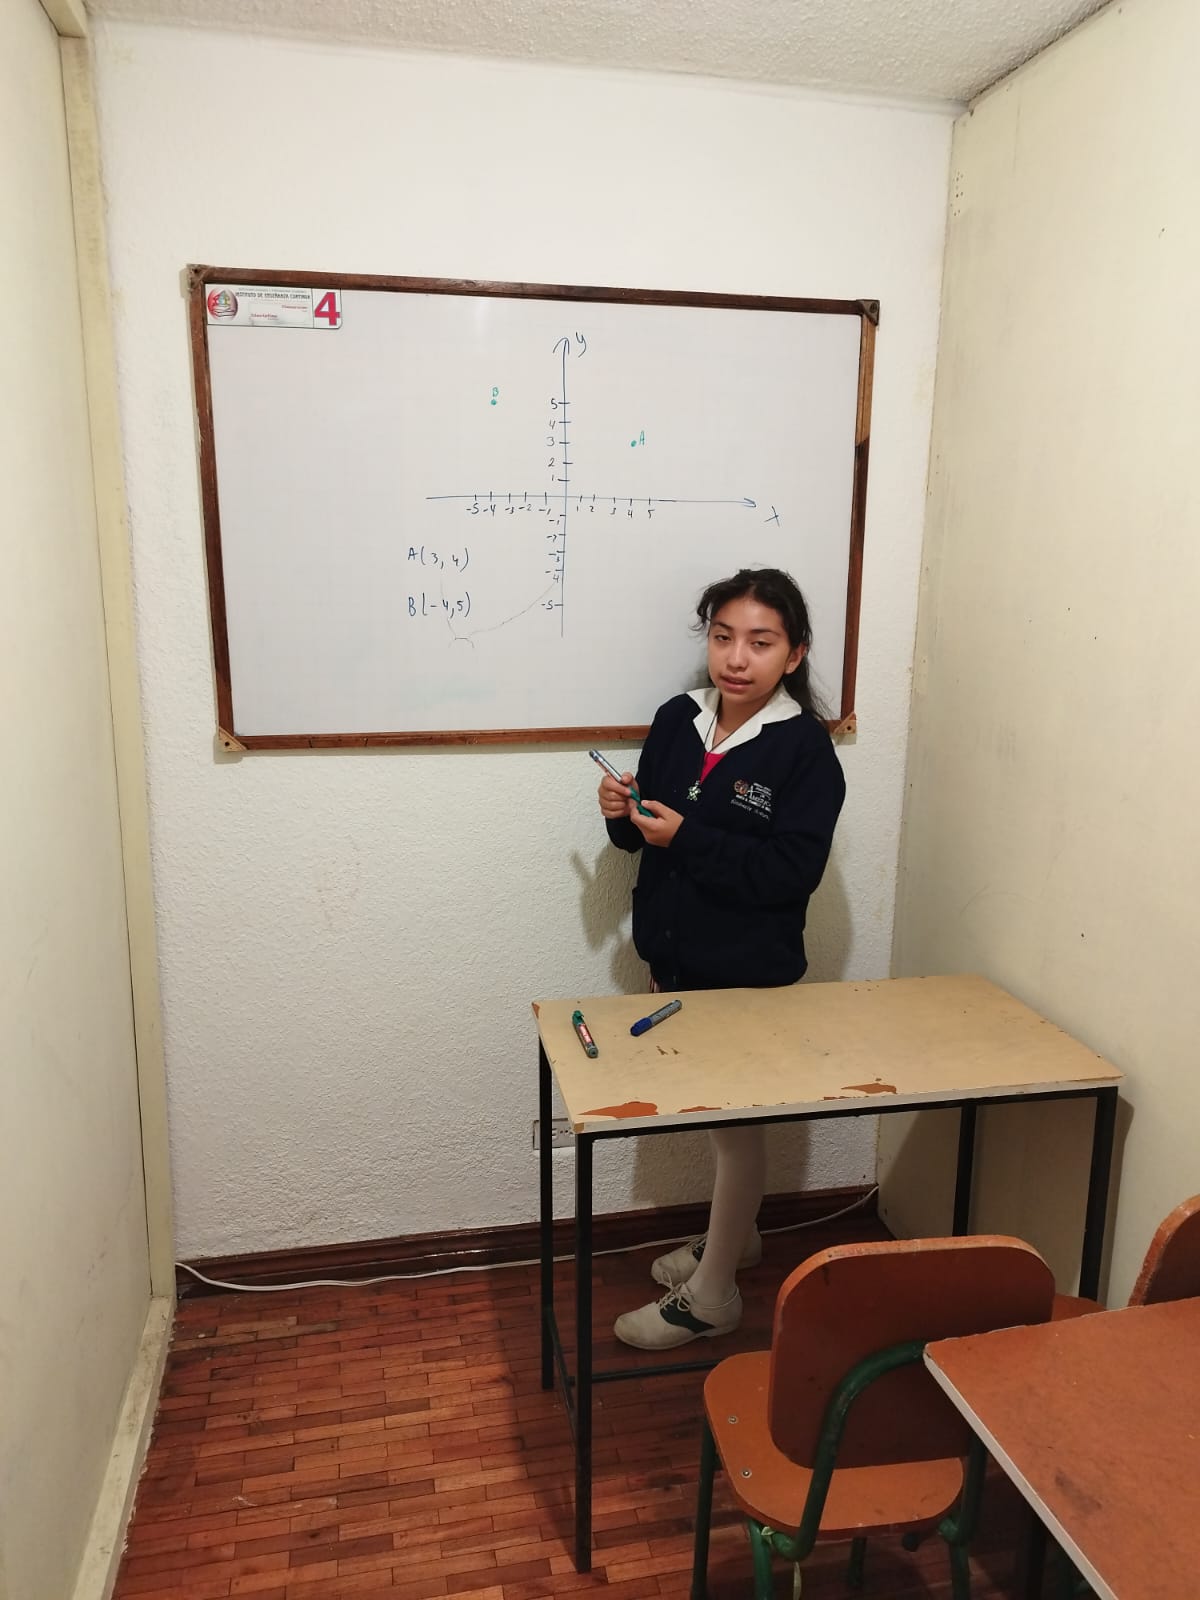 INSTITUTO DE ENSEÑANZA CONTINUA
4
y
B
5
4
3
A
2
1
-5 -4 -3 -2 -1 1 2 3 4 5
x
-1
-2
-3
-4
-5
A(3, 4)
B(-4,5)
América